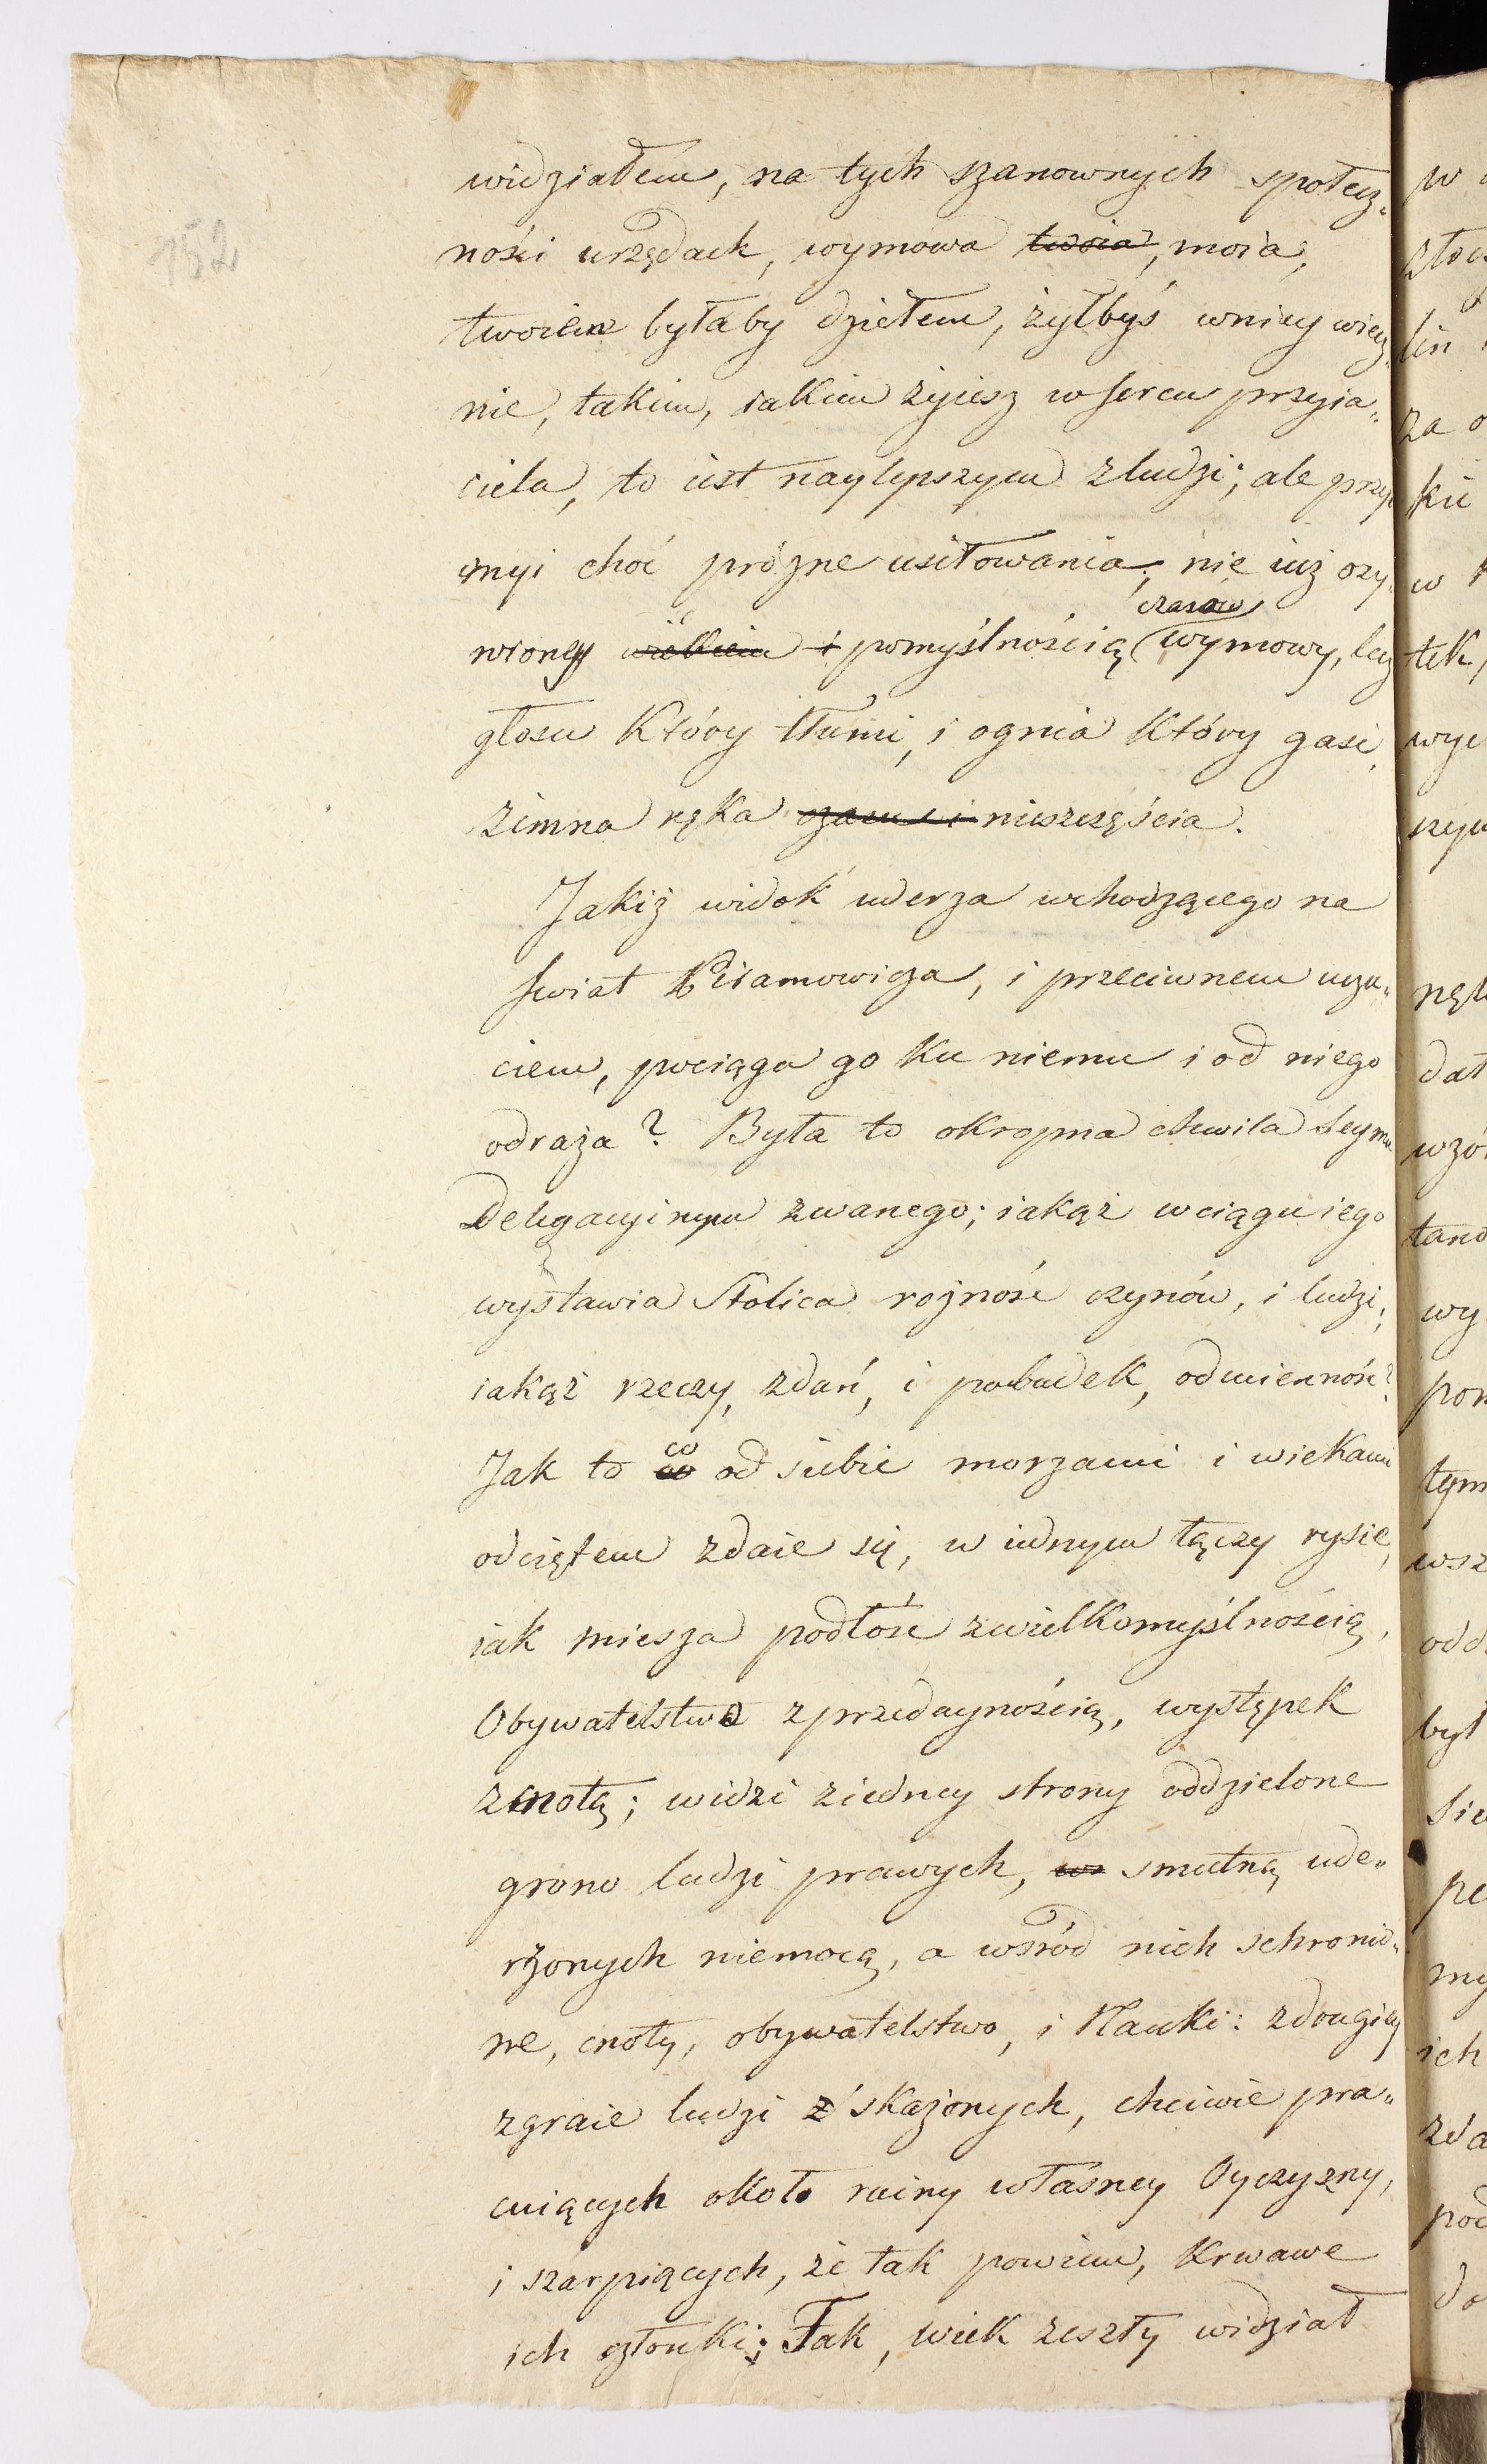 152
widziałem, na tych szanownych społecz„
ności urzędach, wymowa twoia, moia,
twoiem byłaby dziełem, żyłbyś wniey wiecz„
nie, takim, iakim żyiesz w sercu przyia„
ciela, to iest naylepszym zludzi; ale przy„
myi choć prózne usiłowania, nie iuż ozy„
czasow
wioney wiekiem i pomyślnością wymowy, lecz
głosu który tłumi, i ognia który gasi,
zimna ręka czasu i nieszczęścia.
Jakiż widok uderza wchodzącego na
swiat Piramowicza, i przeciwnem uczu„
ciem, pociąga go ku niemu i od niego
odraża? Była to okropna chwila Seymu
Delegacyinym zwanego; iakąż wciągu iego
wystawia Stolica rożność czynów, i ludzi,
iakąż rzeczy, zdań, i pobudek, odmienność?
co
Jak to co od siebie morzami i wiekami
odciętem zdaie się, w iednym łączy rysie,
iak miesza podłość zwielkomyślnością,
Obywatelstwo zprzedaynością, występek
zcnotą; widzi ziedney strony oddzielone
grono ludzi prawych, smutną ude„
rzonych niemocą, a wśród nich schronio„
ne, cnoty, obywatelstwo, i Nauki: zdrugiey
zgraie ludzi skażonych, chciwie pra„
cuiących około ruiny własney Oyczyzny,
i szarpiących, że tak powiem, krwawe
ich członki; Tak, wiek zeszły widział